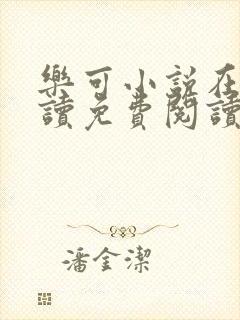 樂可小説在
讀免費閱讀
潘金潔